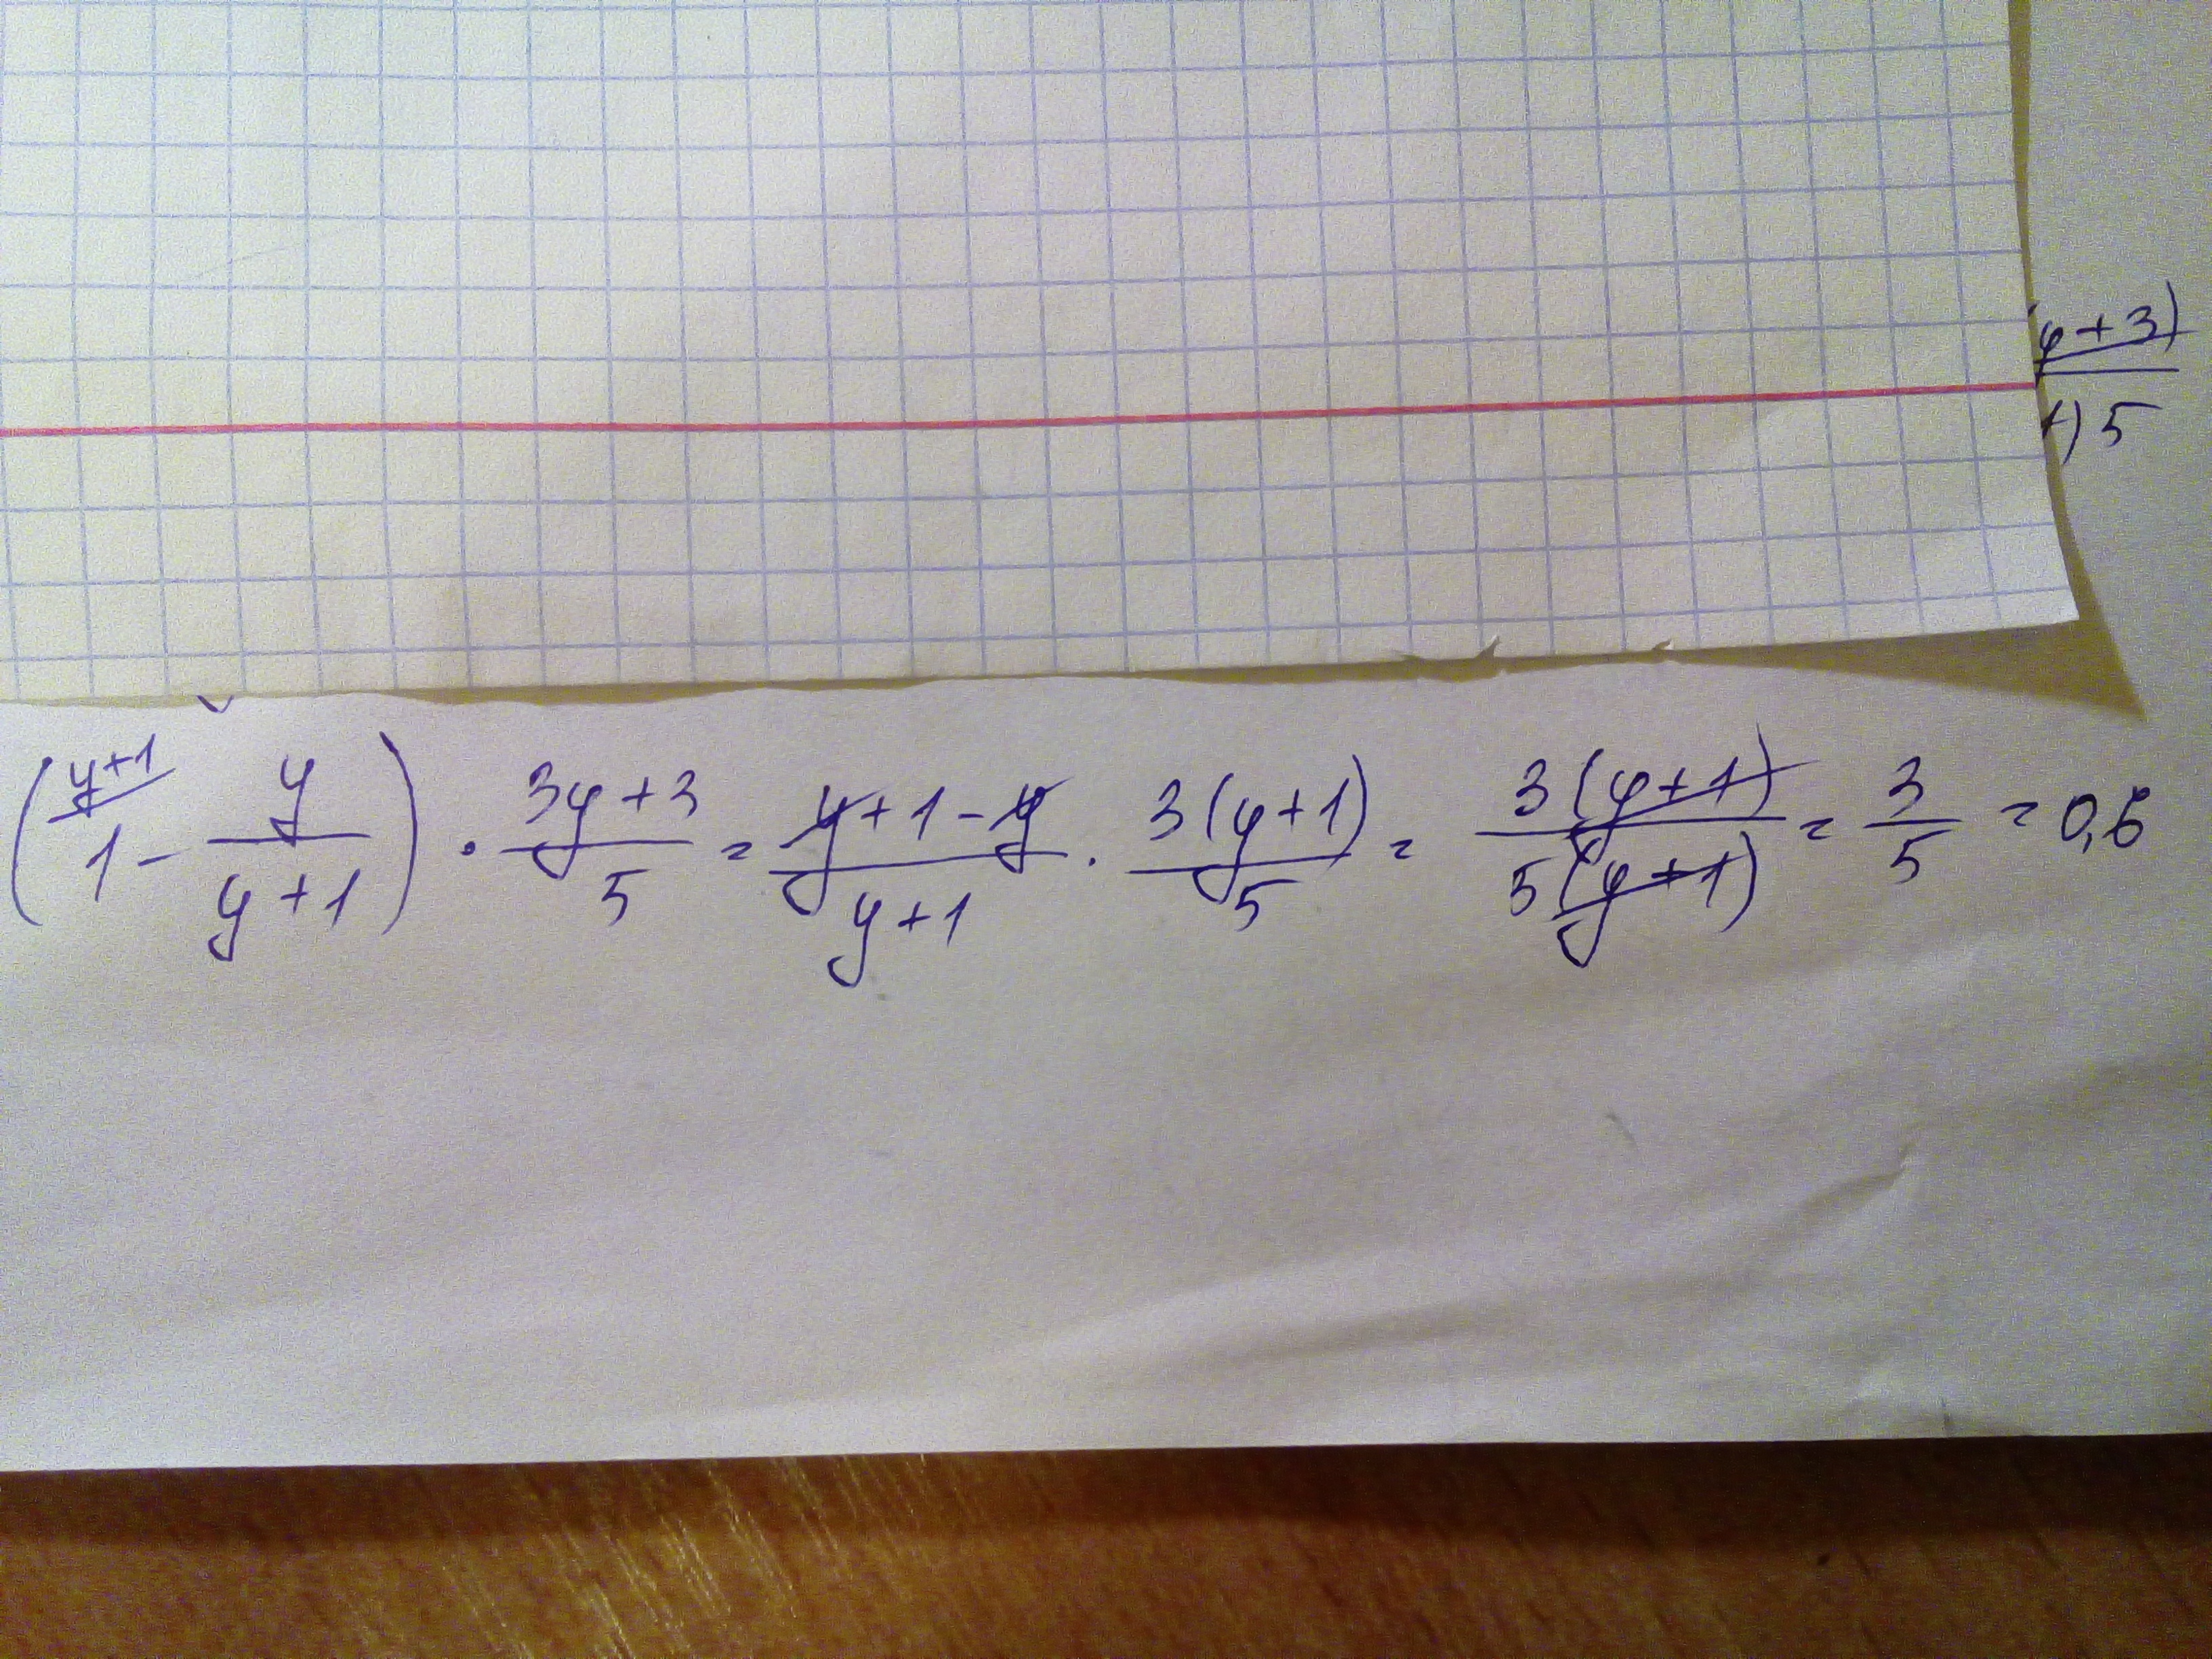 y+3)
+) 5
(1^{y+1} - \frac{y}{y+1}) · \frac{3y+3}{5} = \frac{y+1-y}{y+1} · \frac{3(y+1)}{5} = \frac{3(y+1)}{5(y+1)} = \frac{3}{5} = 0,6